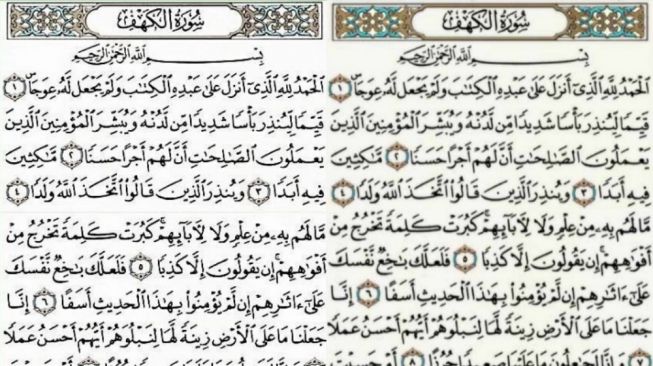 سُورَةُ الكَهْفِ
بِسْمِ ٱللَّهِ ٱلرَّحْمَٰنِ ٱلرَّحِيمِ
ٱلْحَمْدُ لِلَّهِ ٱلَّذِىٓ أَنزَلَ عَلَىٰ عَبْدِهِ ٱلْكِتَٰبَ وَلَمْ يَجْعَل لَّهُۥ عِوَجَاۜ ١
قَيِّمًا لِّيُنذِرَ بَأْسًا شَدِيدًا مِّن لَّدُنْهُ وَيُبَشِّرَ ٱلْمُؤْمِنِينَ ٱلَّذِينَ
يَعْمَلُونَ ٱلصَّٰلِحَٰتِ أَنَّ لَهُمْ أَجْرًا حَسَنًا ٢ مَّٰكِثِينَ
فِيهِ أَبَدًا ٣ وَيُنذِرَ ٱلَّذِينَ قَالُوا۟ ٱتَّخَذَ ٱللَّهُ وَلَدًا ٤
مَّا لَهُم بِهِۦ مِنْ عِلْمٍ وَلَا لِءَابَآئِهِمْ ۚ كَبُرَتْ كَلِمَةً تَخْرُجُ مِنْ
أَفْوَٰهِهِمْ ۚ إِن يَقُولُونَ إِلَّا كَذِبًا ٥ فَلَعَلَّكَ بَٰخِعٌ نَّفْسَكَ
عَلَىٰٓ ءَاثَٰرِهِمْ إِن لَّمْ يُؤْمِنُوا۟ بِهَٰذَا ٱلْحَدِيثِ أَسَفًا ٦ إِنَّا
جَعَلْنَا مَا عَلَى ٱلْأَرْضِ زِينَةً لَّهَا لِنَبْلُوَهُمْ أَيُّهُمْ أَحْسَنُ عَمَلًا
٧ وَإِنَّا لَجَٰعِلُونَ مَا عَلَيْهَا صَعِيدًا جُرُزًا ٨ أَمْ حَسِبْتَ
سُورَةُ الكَهْفِ
بِسْمِ ٱللَّهِ ٱلرَّحْمَٰنِ ٱلرَّحِيمِ
ٱلْحَمْدُ لِلَّهِ ٱلَّذِىٓ أَنزَلَ عَلَىٰ عَبْدِهِ ٱلْكِتَٰبَ وَلَمْ يَجْعَل لَّهُۥ عِوَجَاۜ ١
قَيِّمًا لِّيُنذِرَ بَأْسًا شَدِيدًا مِّن لَّدُنْهُ وَيُبَشِّرَ ٱلْمُؤْمِنِينَ ٱلَّذِينَ
يَعْمَلُونَ ٱلصَّٰلِحَٰتِ أَنَّ لَهُمْ أَجْرًا حَسَنًا ٢ مَّٰكِثِينَ
فِيهِ أَبَدًا ٣ وَيُنذِرَ ٱلَّذِينَ قَالُوا۟ ٱتَّخَذَ ٱللَّهُ وَلَدًا ٤
مَّا لَهُم بِهِۦ مِنْ عِلْمٍ وَلَا لِءَابَآئِهِمْ ۚ كَبُرَتْ كَلِمَةً تَخْرُجُ مِنْ
أَفْوَٰهِهِمْ ۚ إِن يَقُولُونَ إِلَّا كَذِبًا ٥ فَلَعَلَّكَ بَٰخِعٌ نَّفْسَكَ
عَلَىٰٓ ءَاثَٰرِهِمْ إِن لَّمْ يُؤْمِنُوا۟ بِهَٰذَا ٱلْحَدِيثِ أَسَفًا ٦ إِنَّا
جَعَلْنَا مَا عَلَى ٱلْأَرْضِ زِينَةً لَّهَا لِنَبْلُوَهُمْ أَيُّهُمْ أَحْسَنُ عَمَلًا